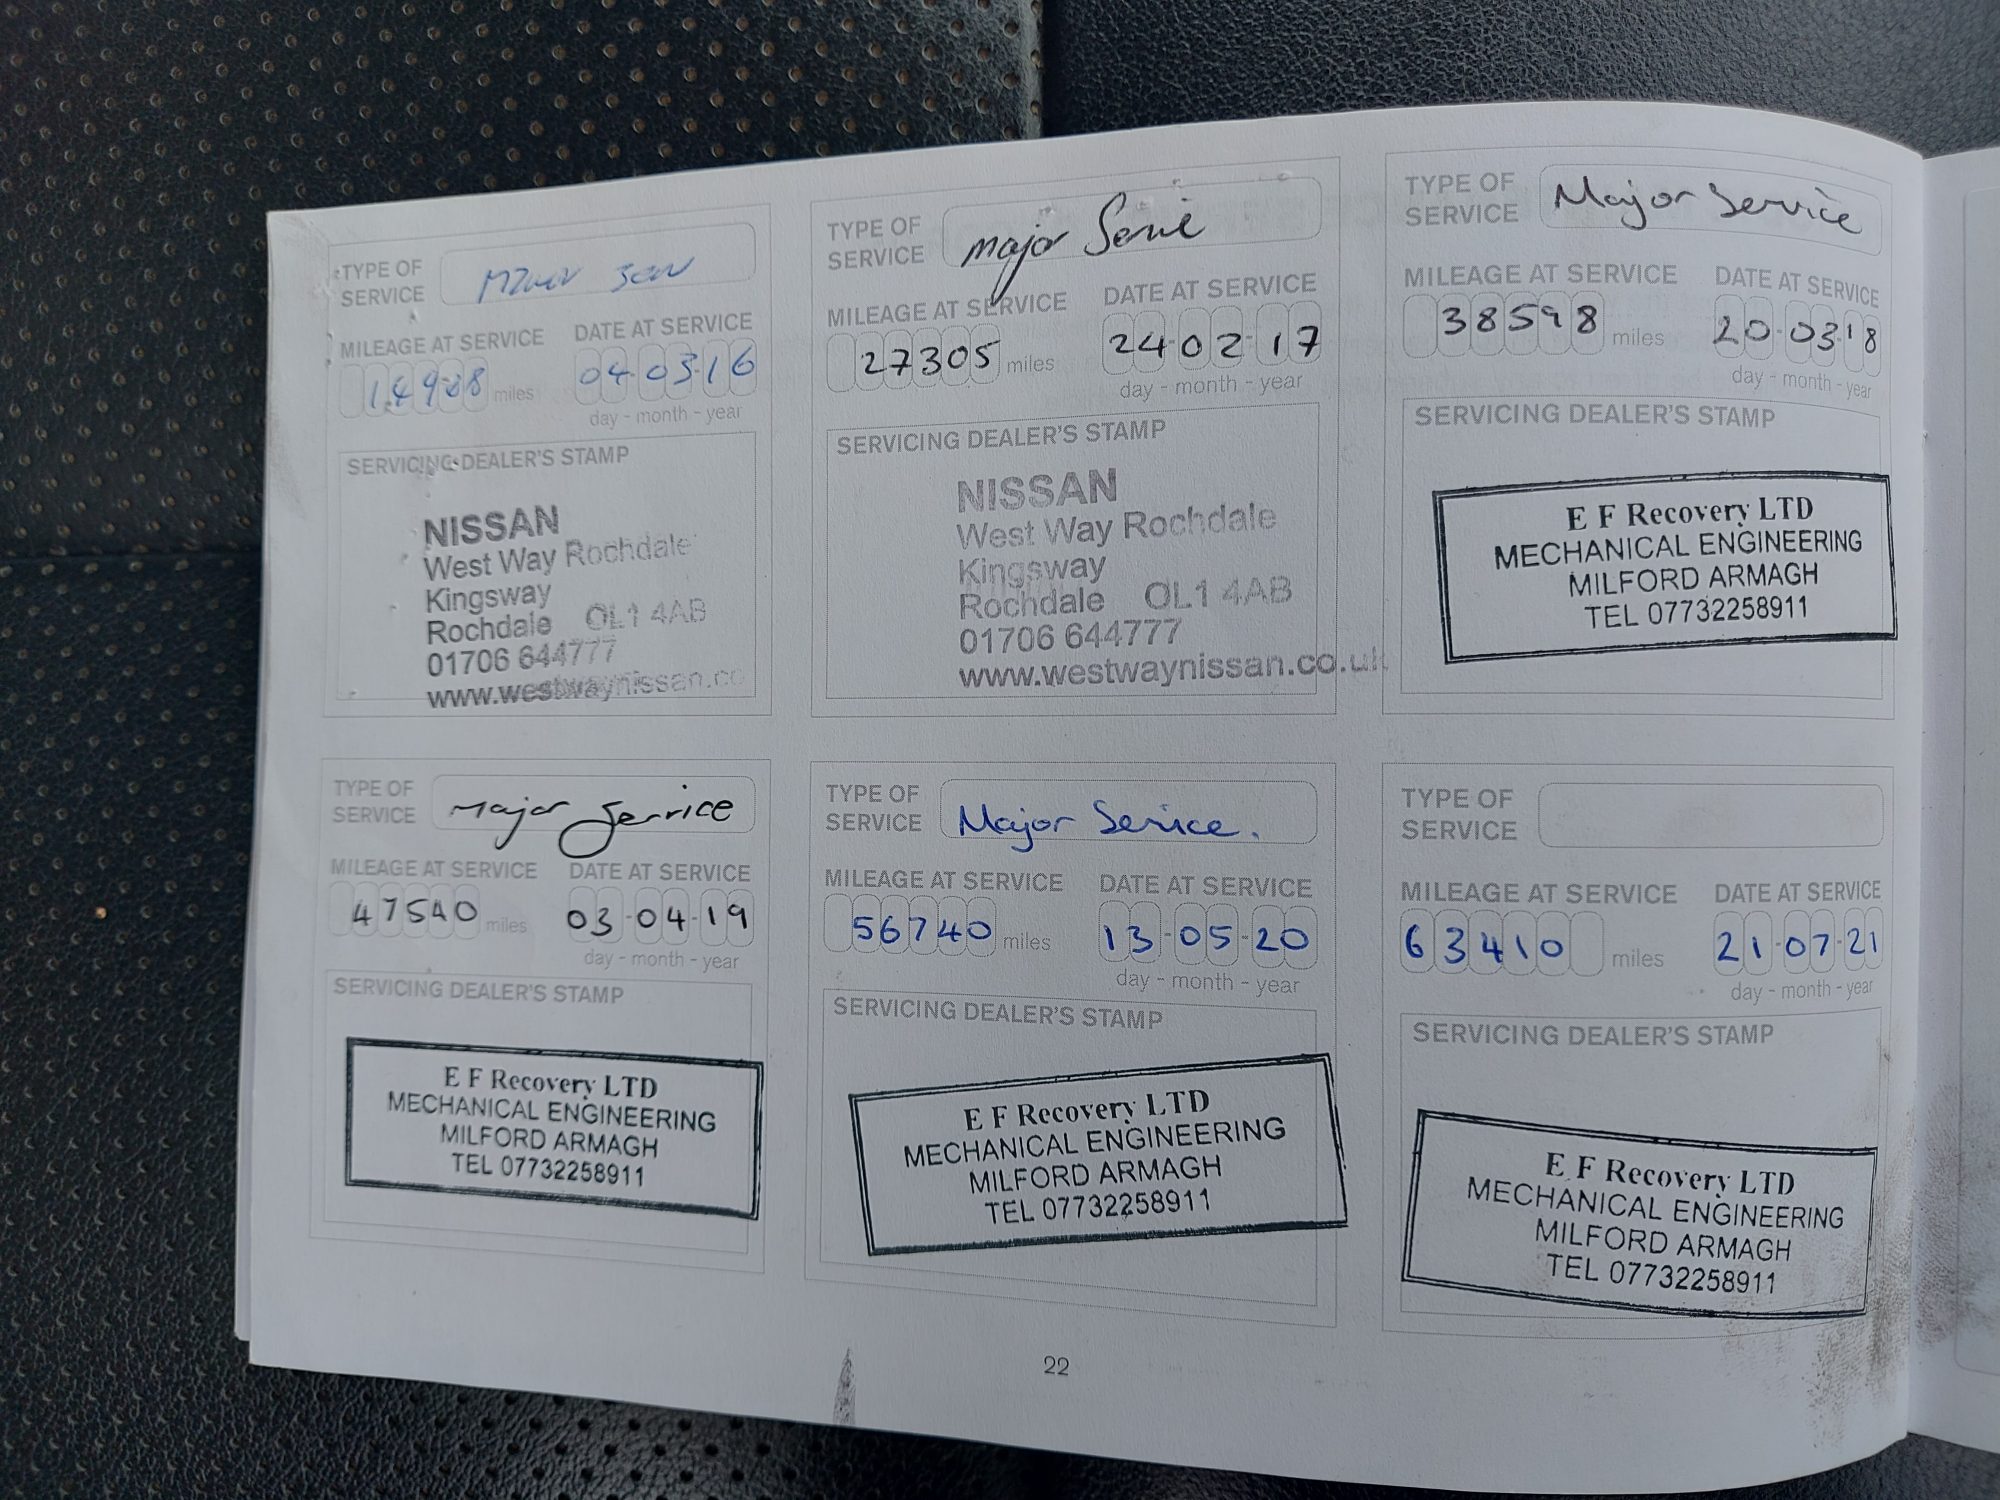 TYPE OF
SERVICE
MILEAGE AT SERVICE DATE AT SERVICE
miles 04-03-16
day - month - year
SERVICING DEALER'S STAMP
NISSAN
West Way Rochdale
Kingsway
Rochdale OL1 4AB
01706 644777
www.westwaynissan.co
TYPE OF
SERVICE major
MILEAGE AT SERVICE DATE AT SERVICE
27305 miles 24-02-17
day - month - year
SERVICING DEALER'S STAMP
NISSAN
West Way Rochdale
Kingsway
Rochdale OL1 4AB
01706 644777
www.westwaynissan.co.uk
TYPE OF
SERVICE Major Service
MILEAGE AT SERVICE DATE AT SERVICE
38598 miles 20-03-18
day - month - year
SERVICING DEALER'S STAMP
E F Recovery LTD
MECHANICAL ENGINEERING
MILFORD ARMAGH
TEL 07732258911
TYPE OF
SERVICE Major Service
MILEAGE AT SERVICE DATE AT SERVICE
47540 miles 03-04-19
day - month - year
SERVICING DEALER'S STAMP
E F Recovery LTD
MECHANICAL ENGINEERING
MILFORD ARMAGH
TEL 07732258911
TYPE OF
SERVICE Major Service.
MILEAGE AT SERVICE DATE AT SERVICE
56740 miles 13-05-20
day - month - year
SERVICING DEALER'S STAMP
E F Recovery LTD
MECHANICAL ENGINEERING
MILFORD ARMAGH
TEL 07732258911
TYPE OF
SERVICE
MILEAGE AT SERVICE DATE AT SERVICE
63410 miles 21-07-21
day - month - year
SERVICING DEALER'S STAMP
E F Recovery LTD
MECHANICAL ENGINEERING
MILFORD ARMAGH
TEL 07732258911
22